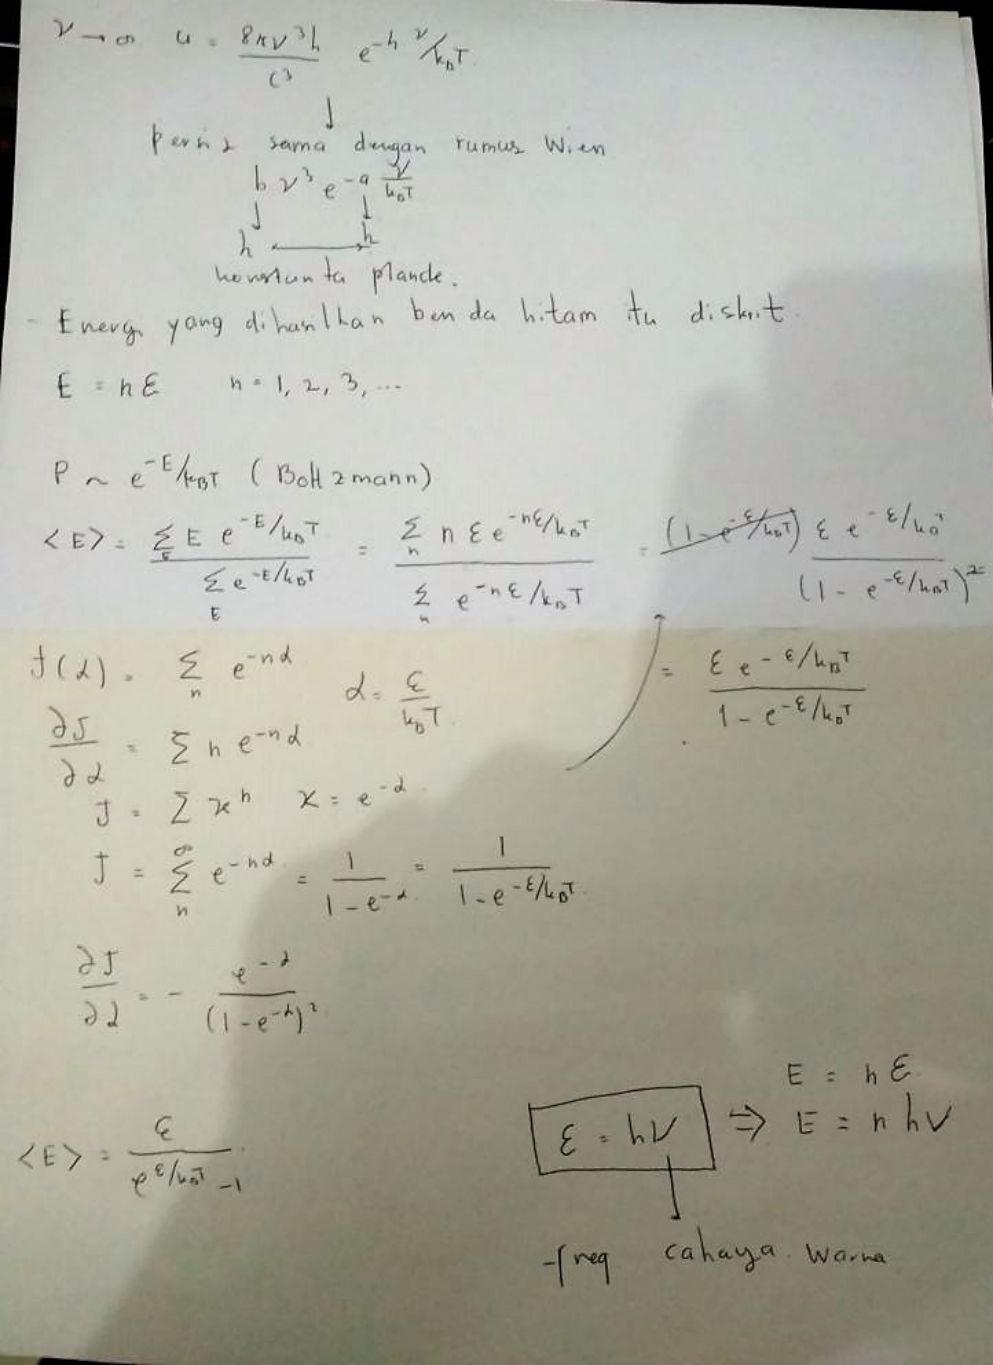 ν → ∞ u = 8πν³h/c³ e^-hν/k_BT
↓
persis sama dengan rumus Wien
b ν³ e^-a ν/k_BT
↓ ↓
h ⟷ h
konstanta planck.
- Energi yang dihasilkan benda hitam itu diskrit.
E = nε n = 1, 2, 3, ...
P ~ e^-E/k_BT (Boltzmann)
<E> = Σ_E E e^-E/k_BT / Σ_E e^-E/k_BT = Σ_n n ε e^-nε/k_BT / Σ_n e^-nε/k_BT = (1-e^-ε/k_BT) ε e^-ε/k_BT / (1 - e^-ε/k_BT)²
= ε e^-ε/k_BT / 1 - e^-ε/k_BT
J(α) = Σ_n e^-nα α = ε/k_BT
∂J/∂α = Σ n e^-nα
J = Σ x^n x = e^-α
J = Σ_n^∞ e^-nα = 1/1-e^-α = 1/1-e^-ε/k_BT
∂J/∂α = - e^-α/(1-e^-α)²
<E> = ε/e^ε/k_BT -1
E = nε
ε = hν ⇒ E = n hν
freq cahaya. warna